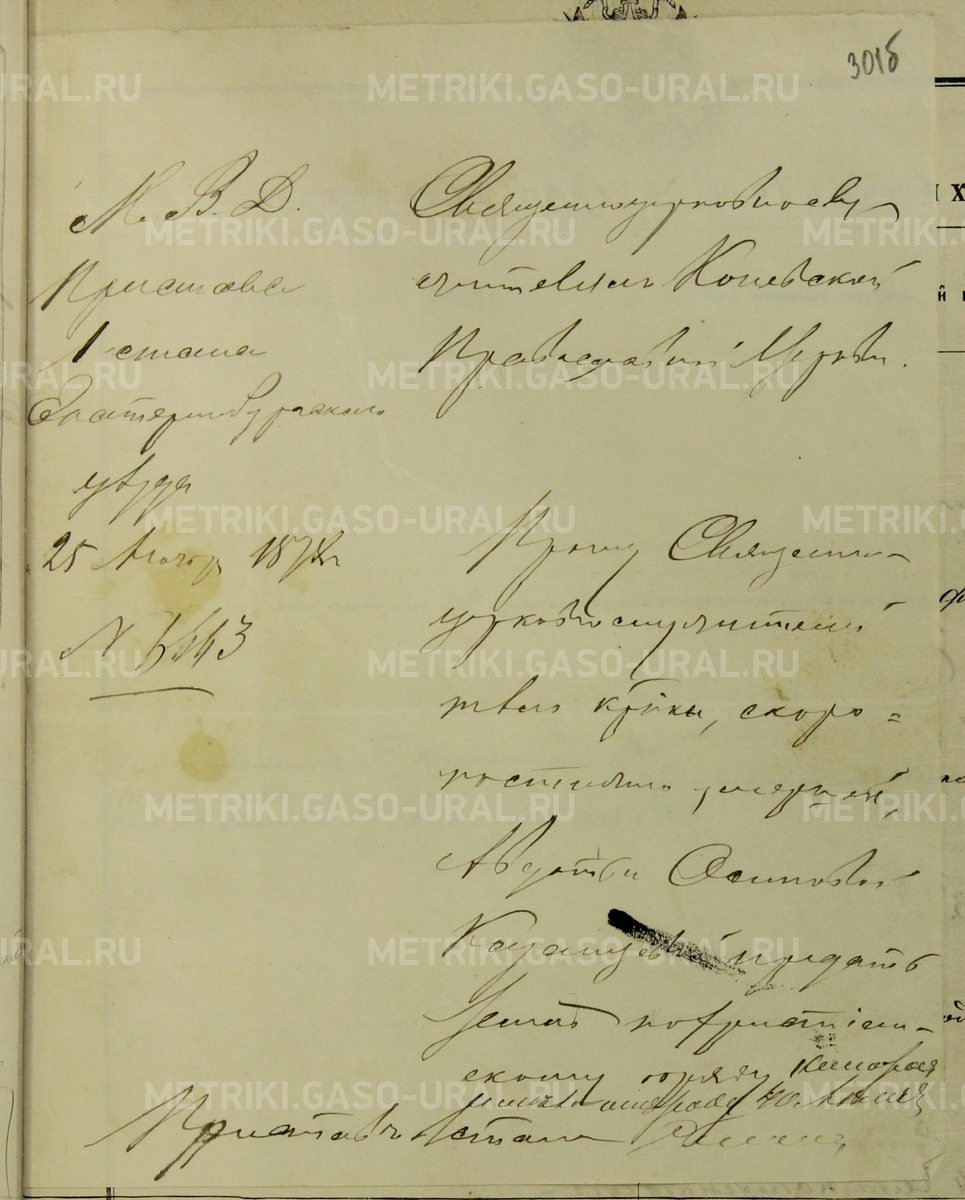 301б
М. В. Д.
Пристава
1 стана
Екатеринбургскаго
уѣзда
25
187
N
Священноцерковнослу-
жителямъ Коневской
Православной Церкви.
Прошу Священно-
церковнослужителей
тѣло кр҃ки, скоро=
постижно умершей,
Авдотьи Осиповой
Казанцевой придать
землѣ по христіан-
скому обряду которая
умерла
Приставъ стана
METRIKI.GASO-URAL.RU